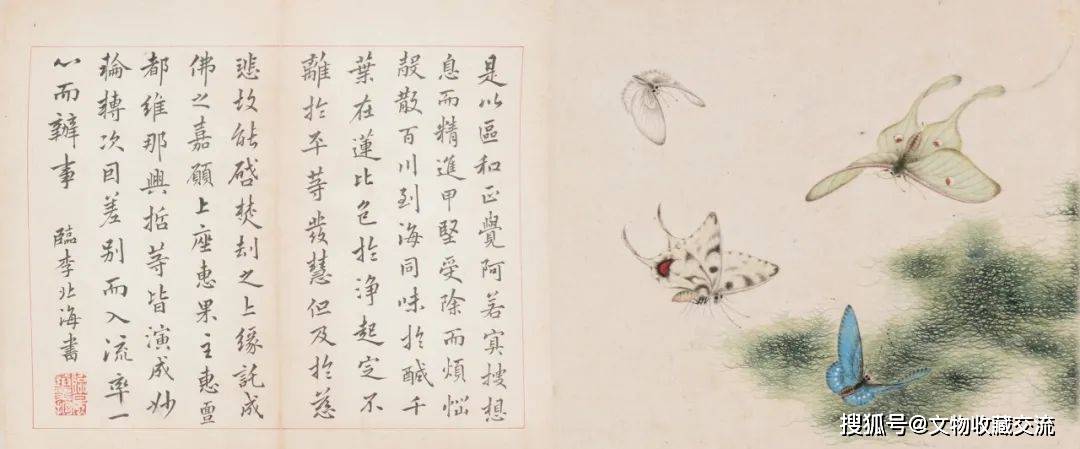 是以區和正覺阿若冥搜想
息而精進甲堅受除而煩惱
殼散百川到海同味於醎千
葉在蓮比色於淨起定不
離於平等發慧但及於慈
悲故能啓焚刦之上緣託成
佛之嘉願上座惠果主惠亶
都維那興括等皆演成妙
輪轉次因差别而入流率一
心而辦事 臨李北海書
搜狐号@文物收藏交流